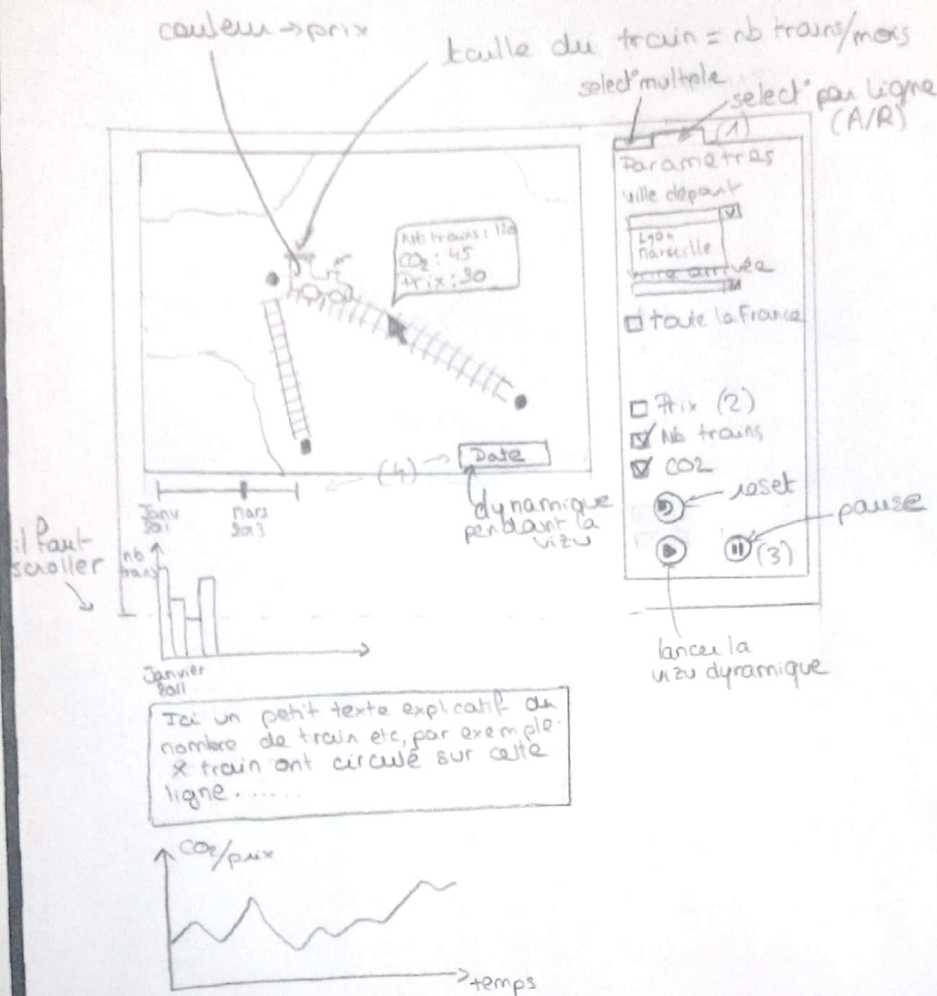 couleur → prix
taille du train = nb trains/mois
select° multiple
select° par ligne
(A/R)
(1)
Paramètres
ville départ
Lyon
Marseille
ville arrivée
toute la France
Nb trains : 120
CO2 : 45
Prix : 30
Prix (2)
Nb trains
CO2
reset
pause
(3)
lancer la
vizu dynamique
Date
(4)
dynamique
pendant la
vizu
Janv
2011
mars
2013
il faut
scroller
nb
trains
Janvier
2011
Ici un petit texte explicatif du
nombre de train etc, par exemple
X train ont circulé sur cette
ligne.......
CO2/prix
temps